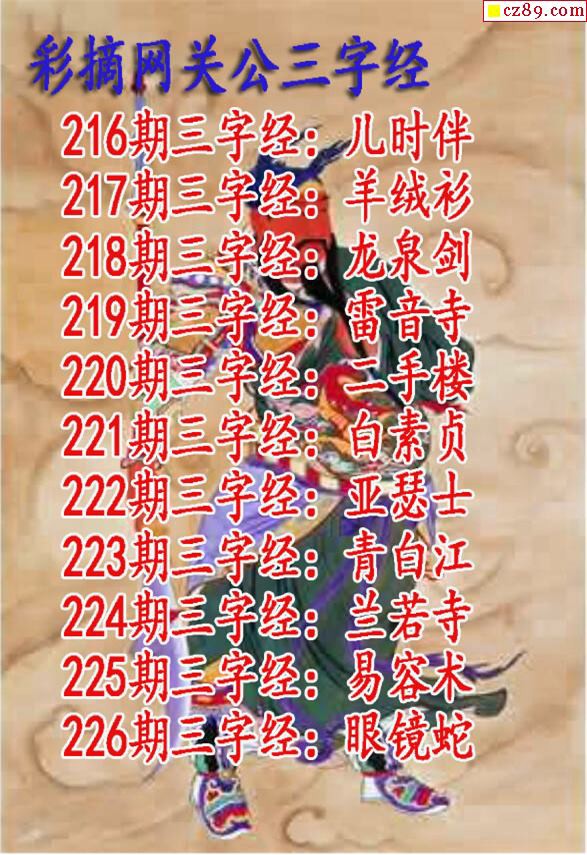 cz89.com
彩摘网关公三字经
216期三字经：儿时伴
217期三字经：羊绒衫
218期三字经：龙泉剑
219期三字经：雷音寺
220期三字经：二手楼
221期三字经：白素贞
222期三字经：亚瑟士
223期三字经：青白江
224期三字经：兰若寺
225期三字经：易容术
226期三字经：眼镜蛇